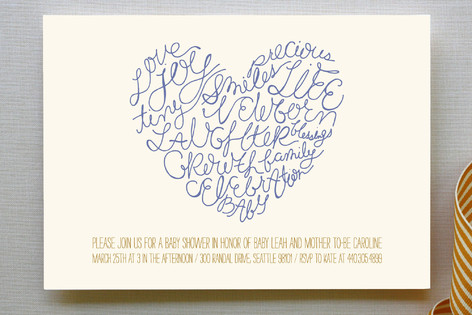 Love
Joy
precious
smiles
LIFE
tiny
Newborn
Laughter
blessings
Growth
family
Celebration
BABY
PLEASE JOIN US FOR A BABY SHOWER IN HONOR OF BABY LEAH AND MOTHER TO-BE CAROLINE
MARCH 25TH AT 3 IN THE AFTERNOON / 300 RANDAL DRIVE, SEATTLE 98101 / RSVP TO KATE AT 440.305.4899